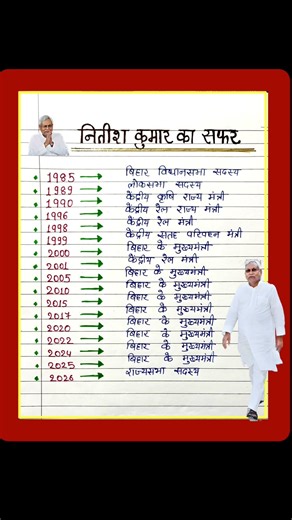 नितीश कुमार का सफर
1985 → बिहार विधानसभा सदस्य
1989 → लोकसभा सदस्य
1990 → केंद्रीय कृषि राज्य मंत्री
1996 → केंद्रीय रेल राज्य मंत्री
1998 → केंद्रीय रेल मंत्री
1999 → केंद्रीय सतह परिवहन मंत्री
2000 → बिहार के मुख्यमंत्री
2001 → केंद्रीय रेल मंत्री
2005 → बिहार के मुख्यमंत्री
2010 → बिहार के मुख्यमंत्री
2015 → बिहार के मुख्यमंत्री
2017 → बिहार के मुख्यमंत्री
2020 → बिहार के मुख्यमंत्री
2022 → बिहार के मुख्यमंत्री
2024 → बिहार के मुख्यमंत्री
2025 → बिहार के मुख्यमंत्री
2026 → राज्यसभा सदस्य